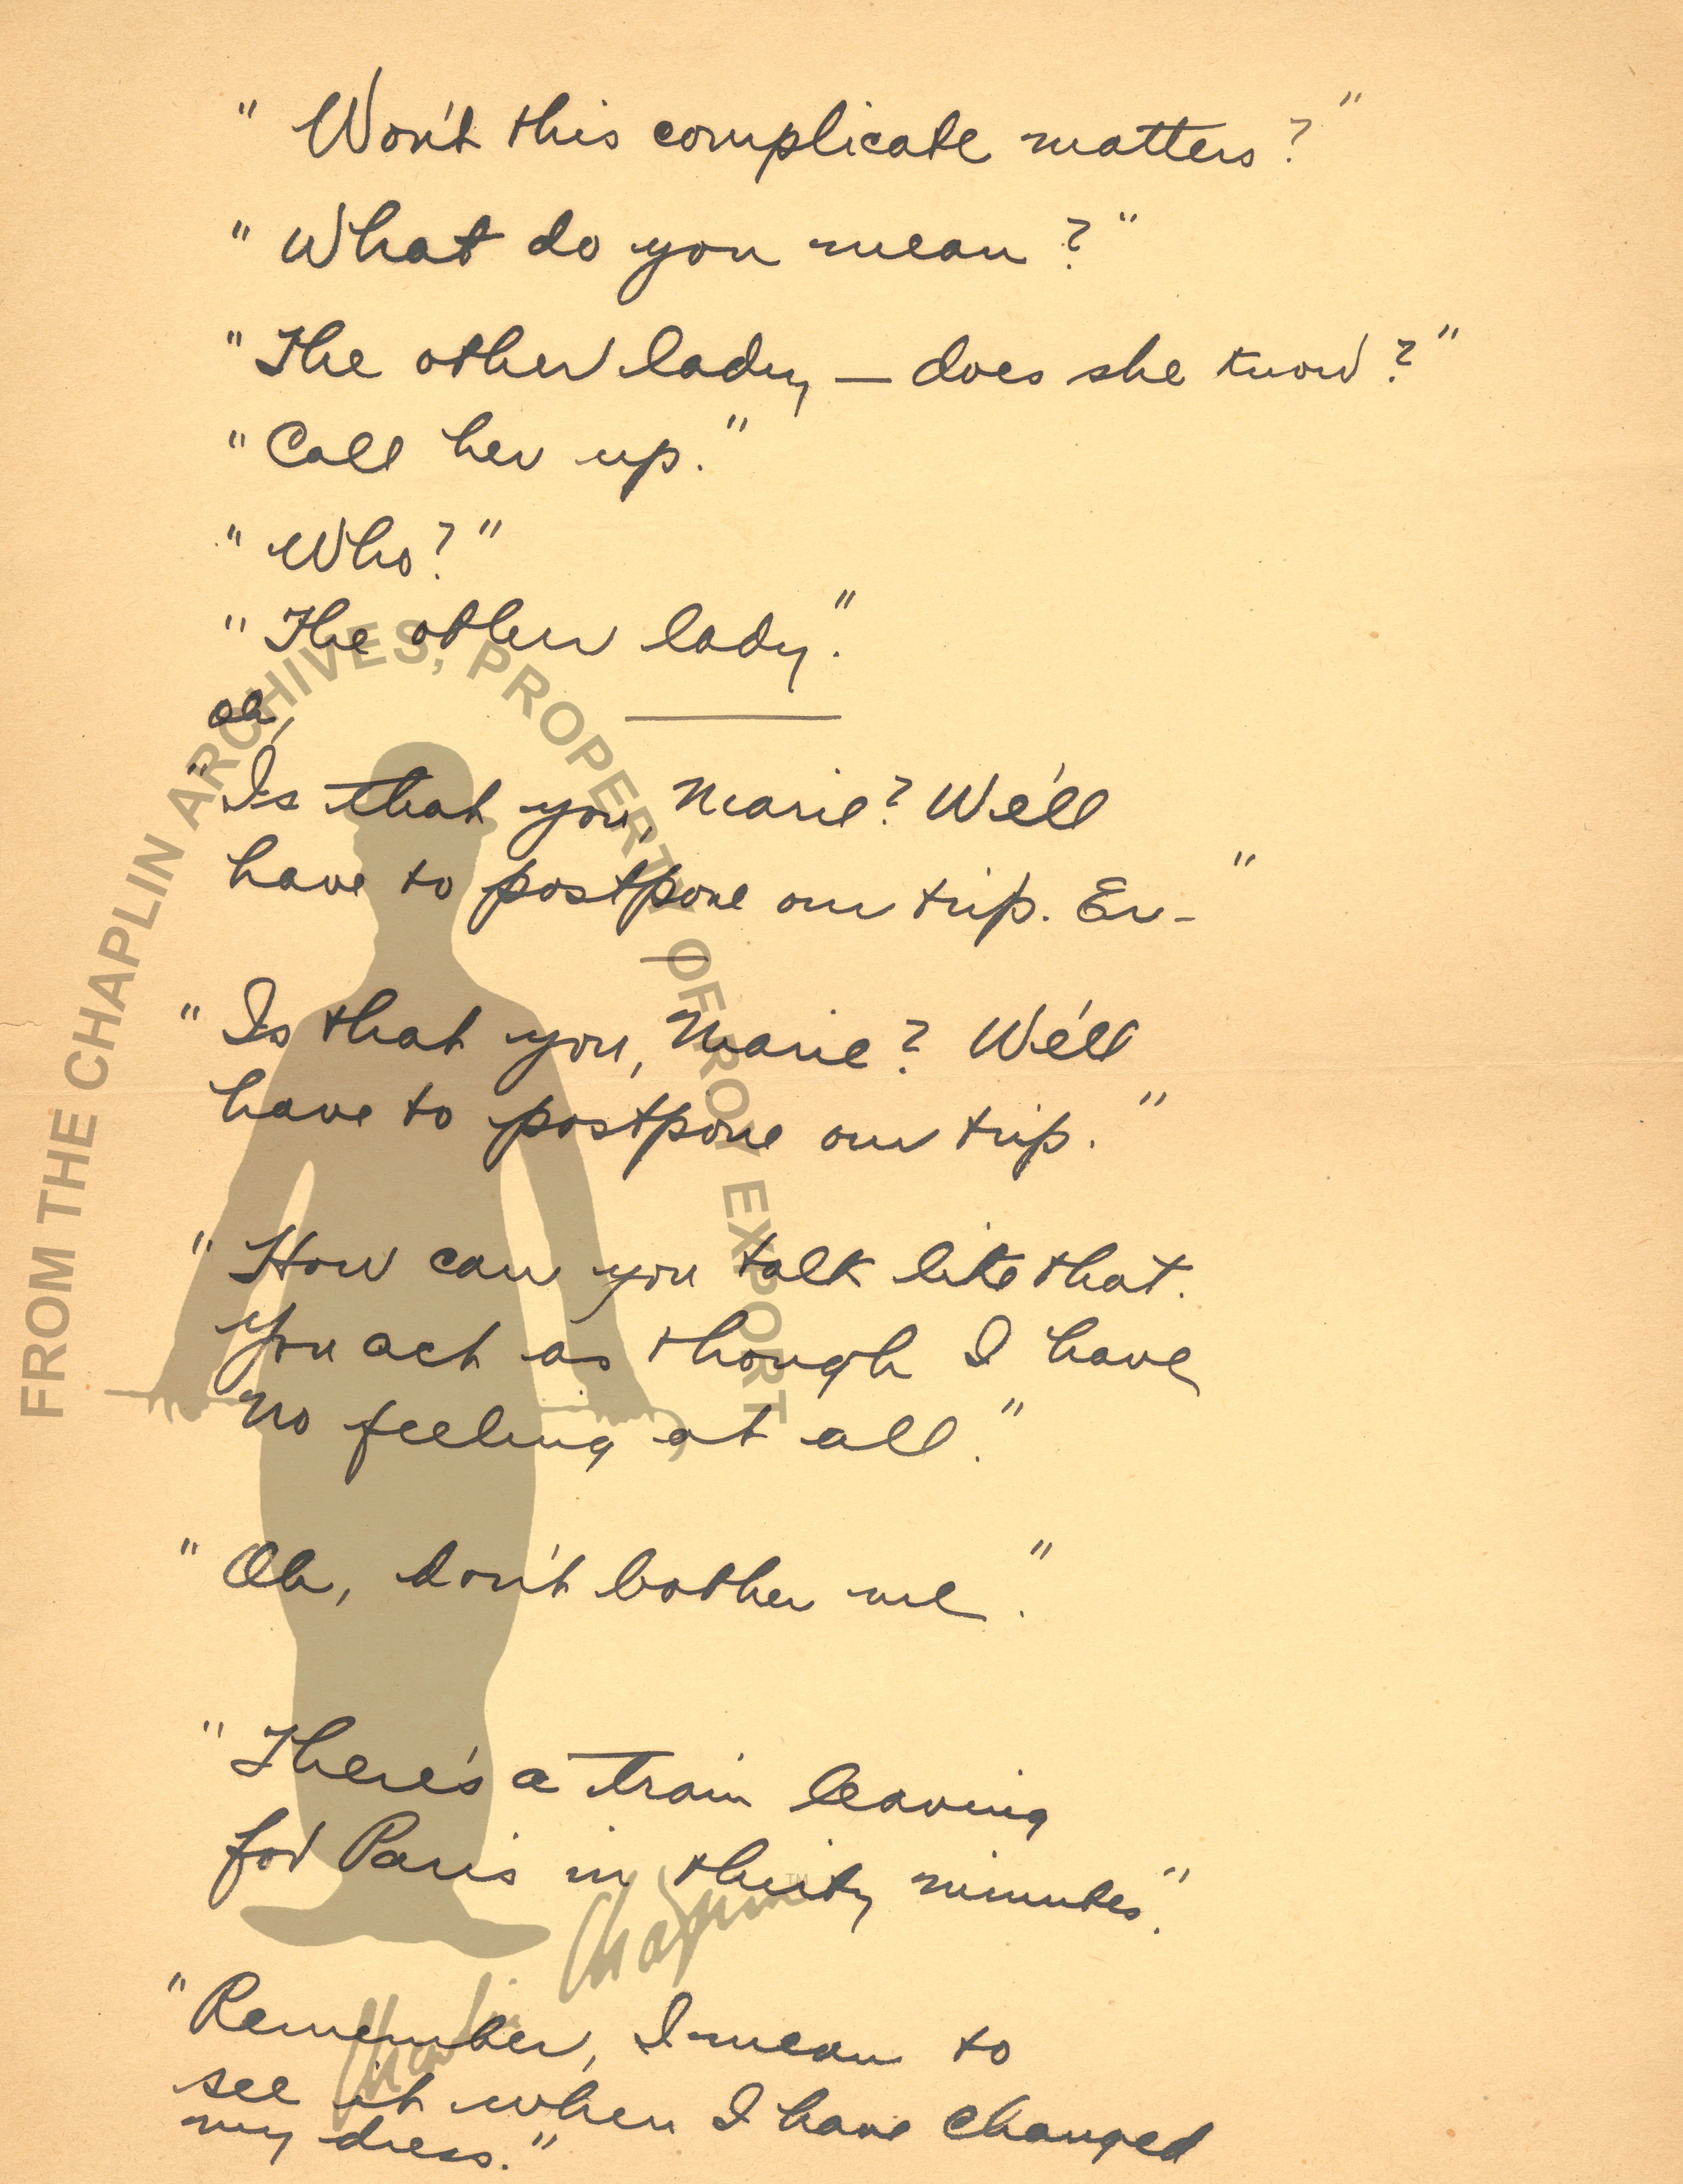 " Won't this complicate matters? "
" What do you mean? "
" The other lady — does she know? "
" Call her up. "
" Who? "
" The other lady. "
Oh,
" Is that you, Marie? We'll
have to postpone our trip. Er- "
" Is that you, Marie? We'll
have to postpone our trip. "
" How can you talk like that.
You act as though I have
no feeling at all. "
" Oh, don't bother me. "
" There's a train leaving
for Paris in thirty minutes. "
" Remember, I mean to
see it when I have changed
my dress. "
FROM THE CHAPLIN ARCHIVES, PROPERTY OF ROY EXPORT
Charlie Chaplin TM